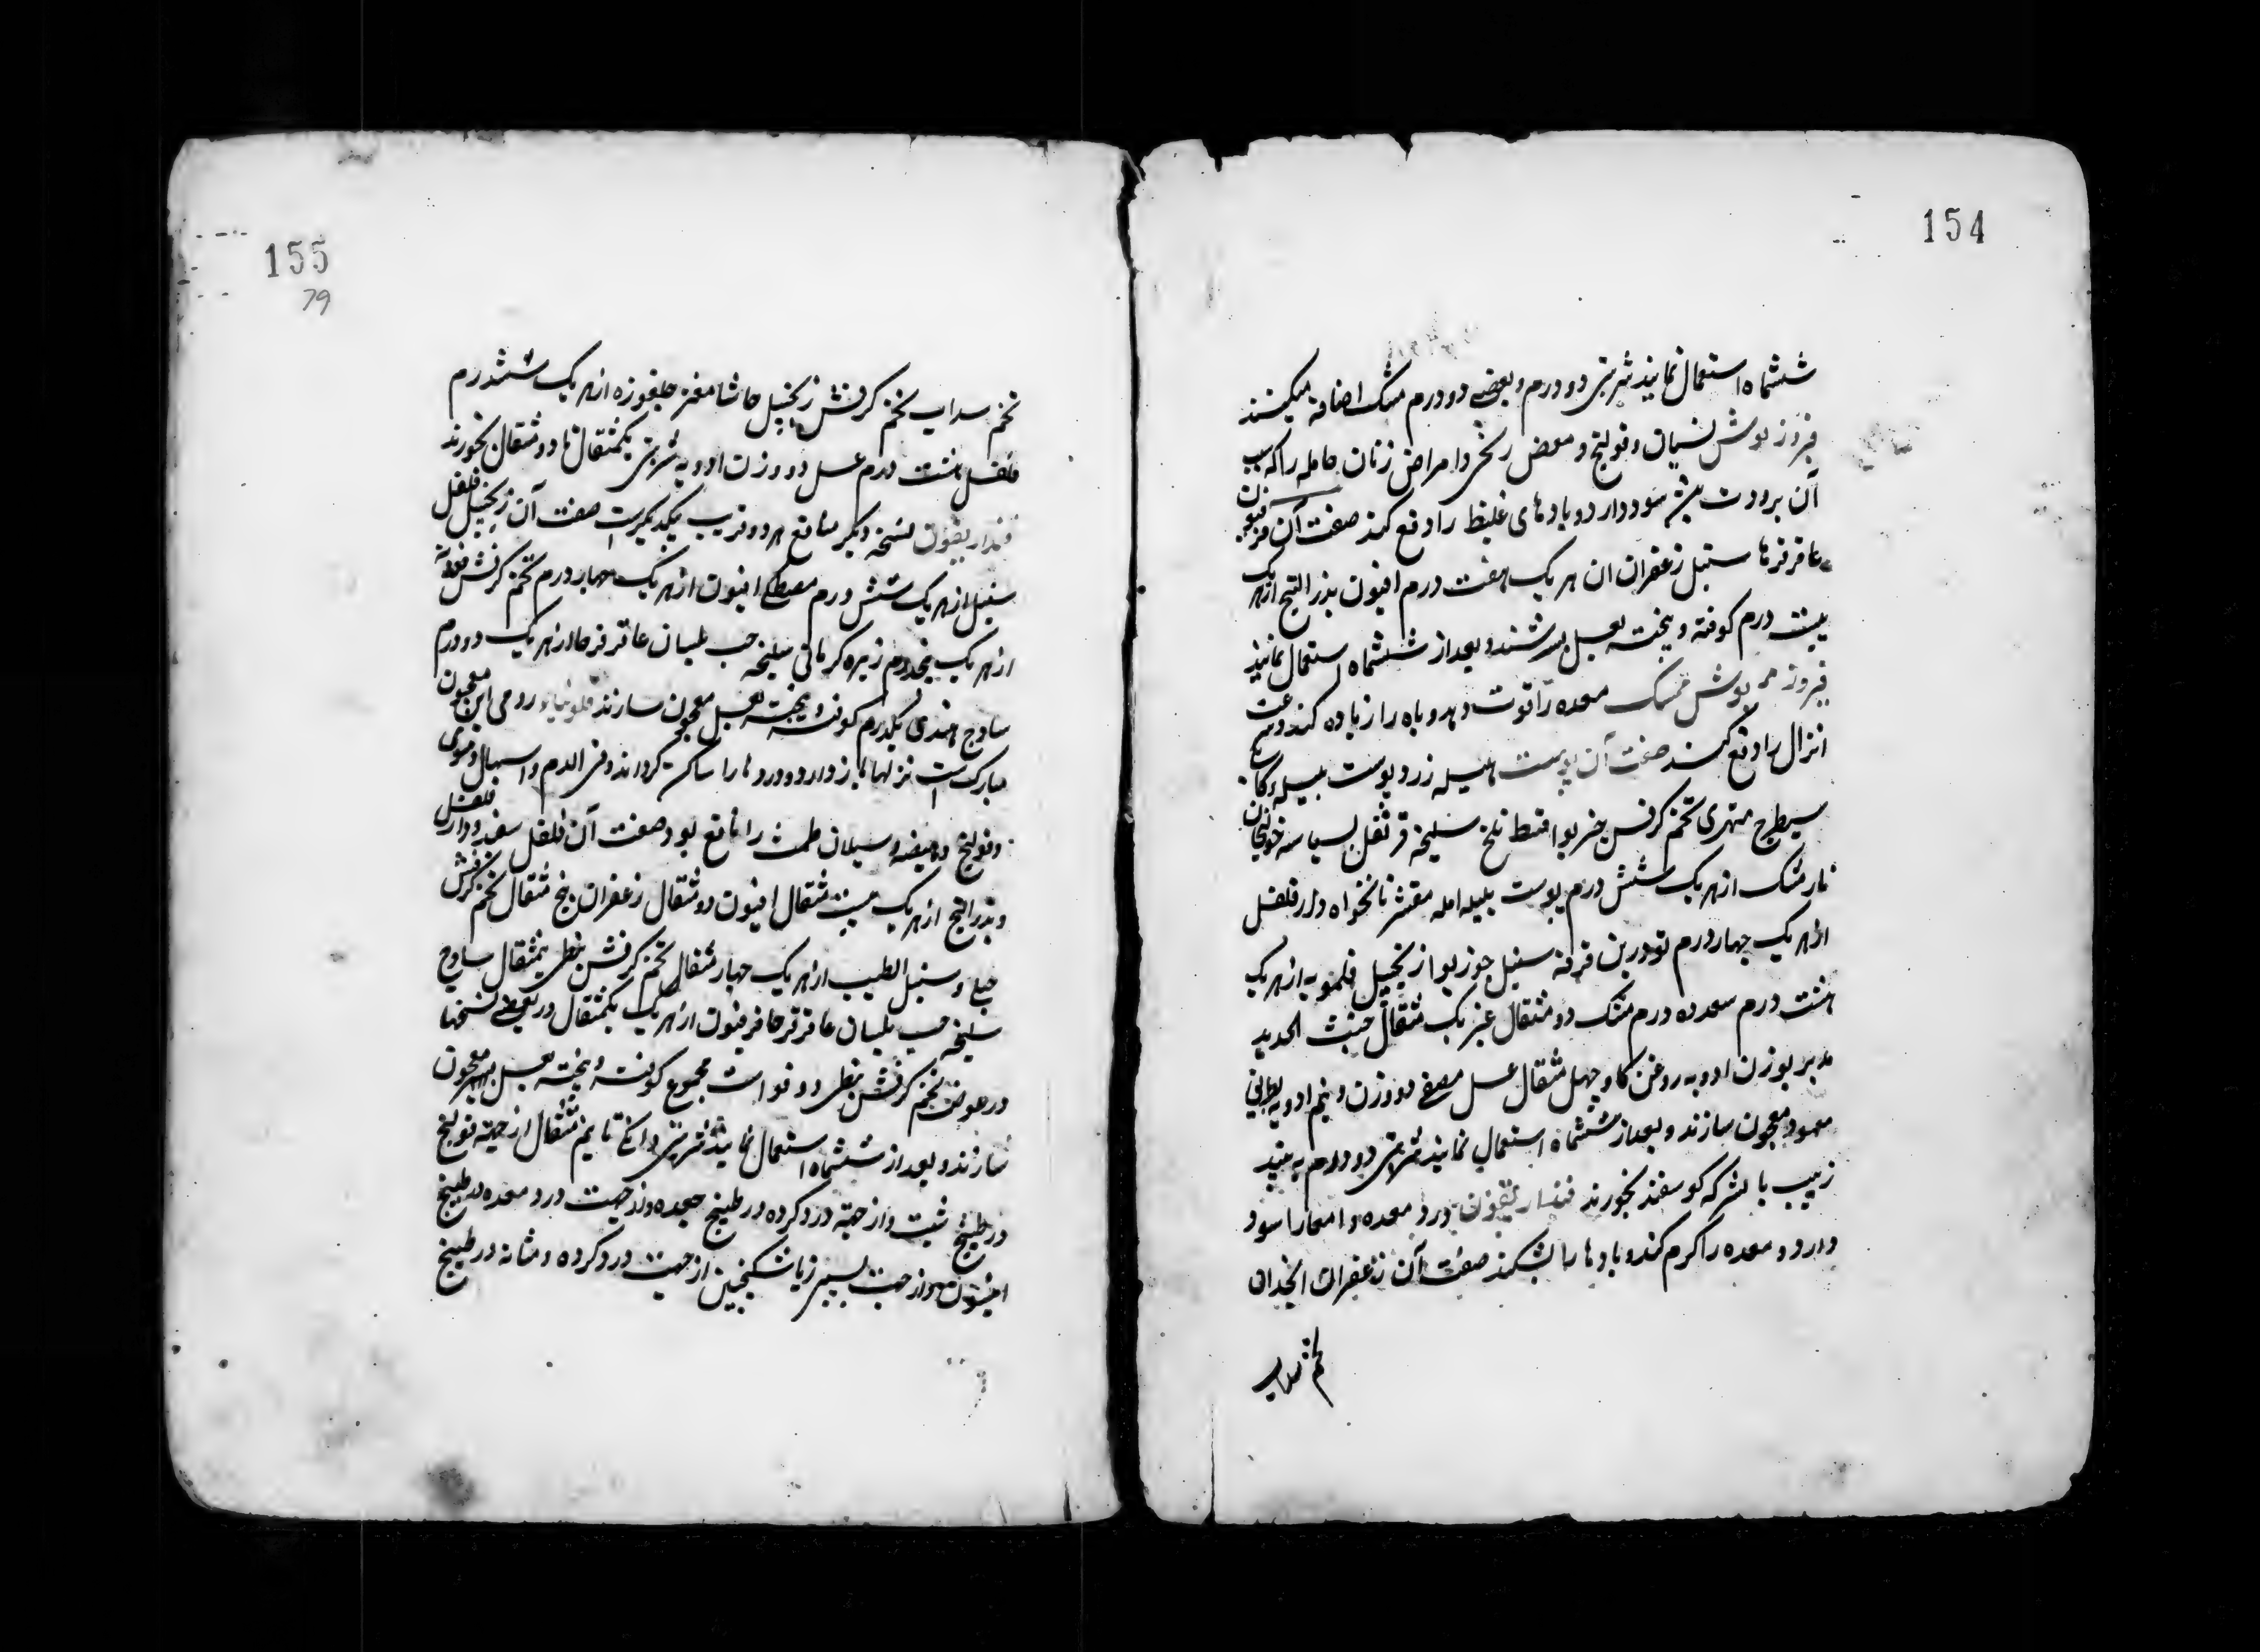 154
ششماه استعمال نمایند شربتی دو درم و بعضی دو درم مشک اضافه میکنند
فیروزنوش نسیان و قولنج و مغص ریحی و امراض زنان حامله را که سبب
آن برودت بیشه سود دارد و بادهای غلیظ را دفع کند صفت آن فرفیون
عاقرقرحا سنبل زعفران از هر یک هفت درم افیون بذر البنج از هر یک
بیست درم کوفته و بیخته بعسل بسرشند و بعد از ششماه استعمال نمایند
فیروزنوش ممسک معده را قوت دهد و باه را زیاده کند و سرعت
انزال را دفع کند صفت آن پوست هلیله زرد پوست بلیله
شیطرج هندی تخم کرفس خیربوا قسط تلخ سلیخه قرنفل بسباسه خولنجان
نارمشک از هر یک شش درم پوست بلیله امله مقشر نانخواه دارفلفل
از هر یک چهار درم تودرین قرفه سنبل جوزبوا زنجبیل فلفمویه از هر یک
هشت درم سعد ده درم مشک دو مثقال عنبر یک مثقال خبث الحدید
مدبر بوزن ادویه روغن کاو چهل مثقال عسل مصفی دو وزن و نیم ادویه بطریق
معهود معجون سازند و بعد از ششماه استعمال نمایند شربتی دو درم به نبید
زبیب یا بسرکه کوسفند بخورند فنداریقون درد معده و امعا را سود
دارد و معده را کرم کند و بادها را بشکند صفت آن زعفران انجدان
تخم سداب
155
79
تخم سداب تخم کرفس زنجبیل حاشا مغز جلغوزه از هر یک ششدرم
فلفل هشت درم عسل دو وزن ادویه شربتی یکمثقال تا دو مثقال بخورند
فنداریقون نسخه دیکر منافع هر دو قریب یکدیکرست صفت آن زنجبیل فلفل
سنبل از هر یک شش درم مصطکی افیون از هر یک چهار درم تخم کرفس فوه
از هر یک پنجدرم زیره کرمانی سلیخه حب بلسان عاقرقرحا از هر یک دو درم
ساذج هندی یکدرم کوفته و بیخته بعسل معجون سازند فلونیاء رومی این معجون
مبارکست نزلها باز دارد و دردها را ساکن کرداند و فی الدم و اسهال دموی
و قولنج و هیضه و سیلان طمث را نافع بود صفت آن فلفل سفید و دارفلفل
و بذر البنج از هر یک بیست مثقال افیون ده مثقال زعفران پنج مثقال تخم کرفس
جبلی و سنبل الطیب از هر یک چهار مثقال تخم کرفس نبطی نیمثقال ساذج
سلیخه حب بلسان عاقرقرحا فرفیون از هر یک یکمثقال و در بعضی نسخها
در عوض تخم کرفس نبطی دوقو است مجموع کوفته و بیخته بعسل معجون
سازند و بعد از ششماه استعمال نمایند شربتی دانکی تا نیم مثقال از جهته قولنج
در طبیخ شبت و از جهته درد کرده در طبیخ جعده و از جهت درد معده در طبیخ
انیسون و از جهت سپرز با سکنجبین از جهت درد کرده و مثانه در طبیخ